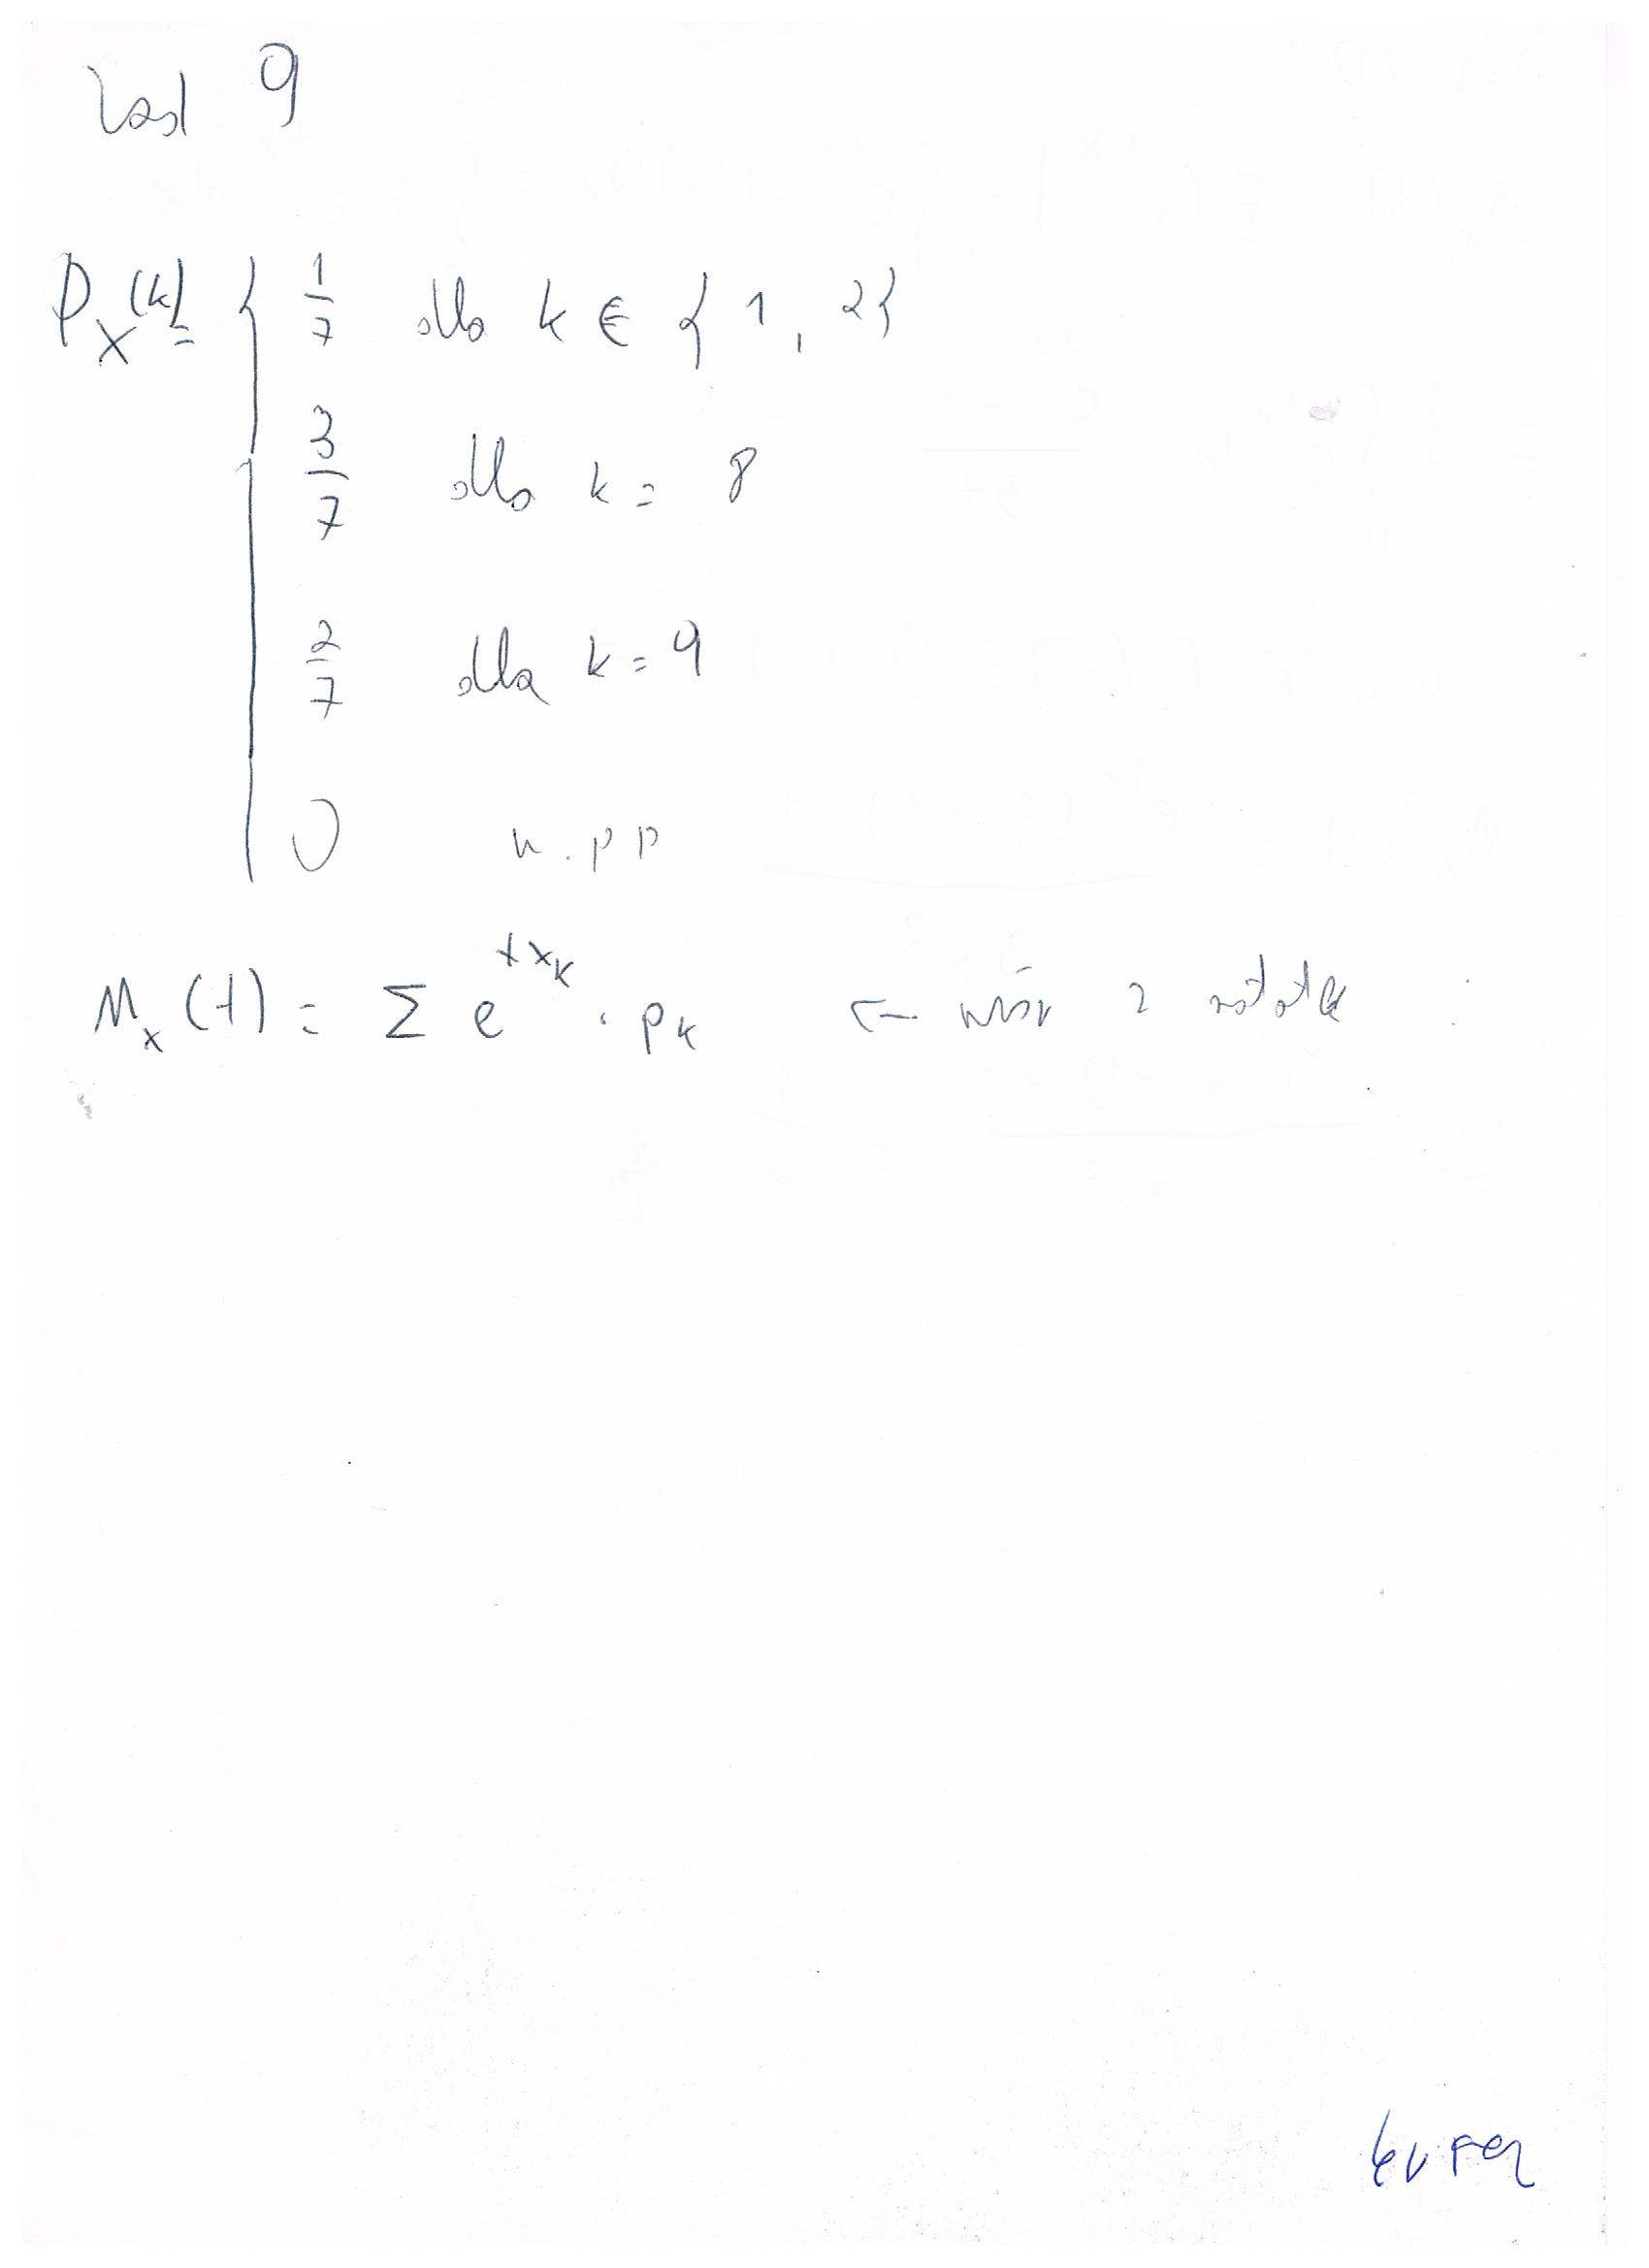 Zad 9
P_X(k) = { 1/7 dla k ∈ { 1, 2 }
3/7 dla k = 8
2/7 dla k = 9
0 w.pp
M_x(t) = Σ e^{t x_k} · p_k ← wzór z notatek